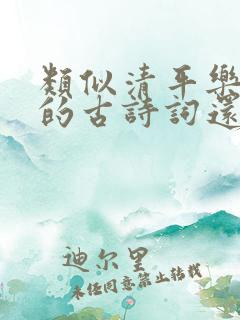 類似清平樂
的古詩詞還
迪尔里
未任同意禁止转载